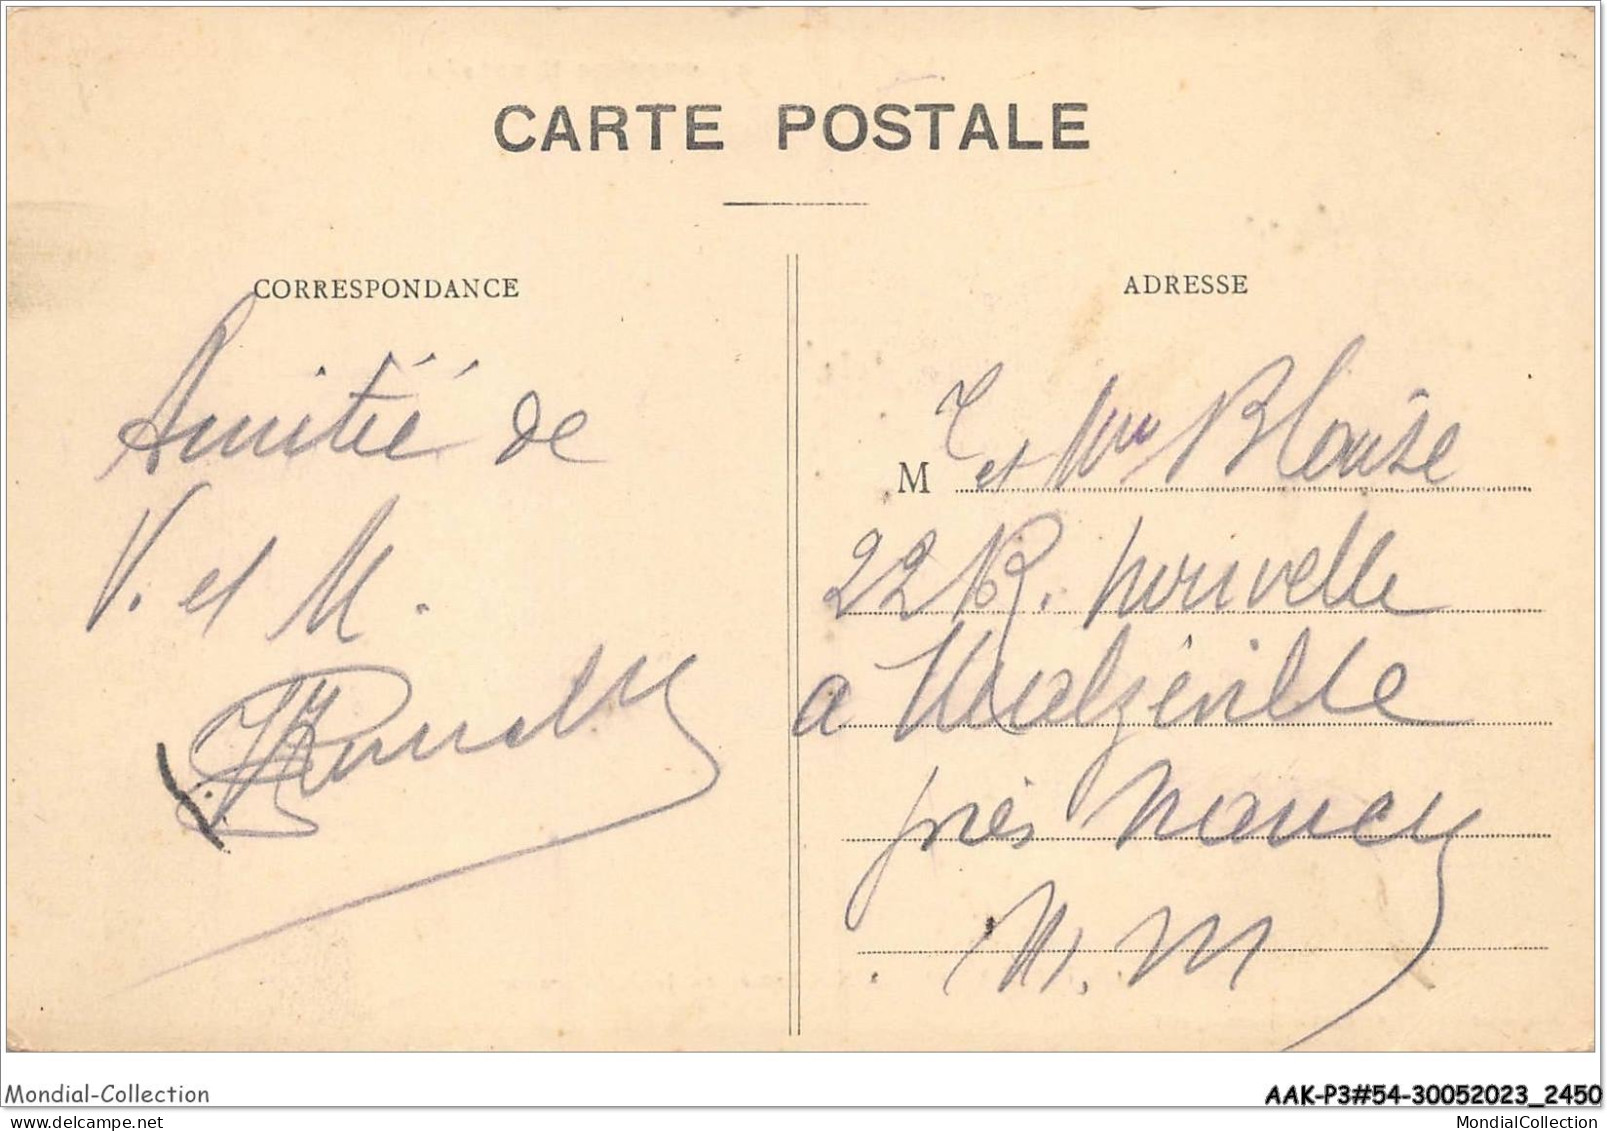 CARTE POSTALE
CORRESPONDANCE
Amitié de
V. et M.
ADRESSE
M et Mme Blaise
22 R. nouvelle
a Malzéville
près Nancy
M. M
Mondial-Collection
AAK-P3#54-30052023_2450
delcampe.net
MondialCollection